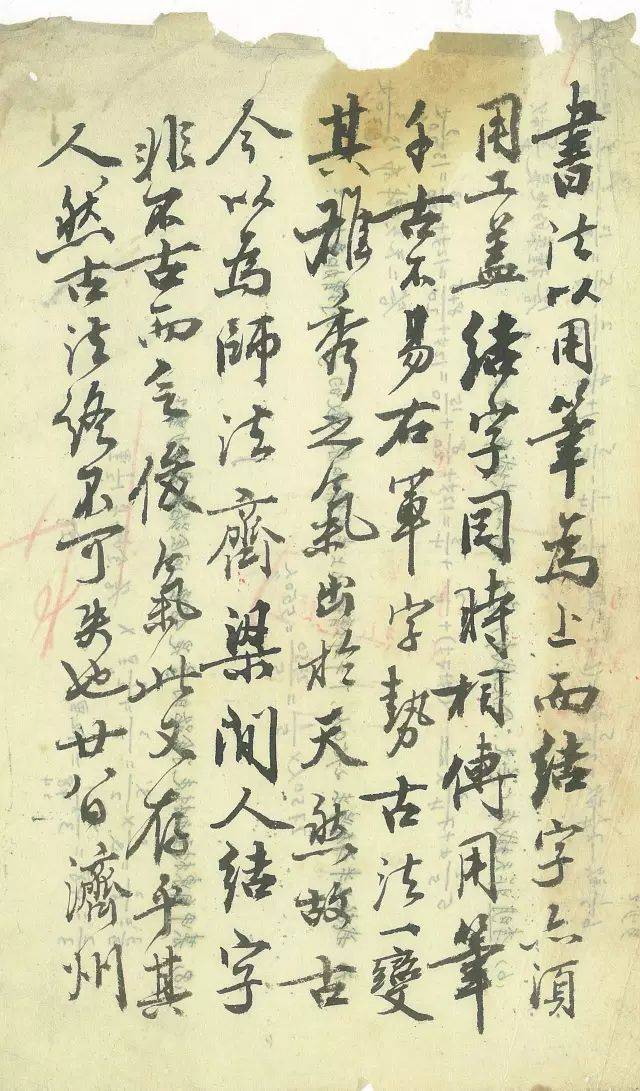 書法以用筆為上而結字亦須
用工盖結字因時相傳用筆
千古不易右軍字勢古法一變
其雄秀之氣出於天然故古
今以為師法齊梁間人結字
非不古而乏俊氣此又存乎其
人然古法終不可失也廿八日濟州